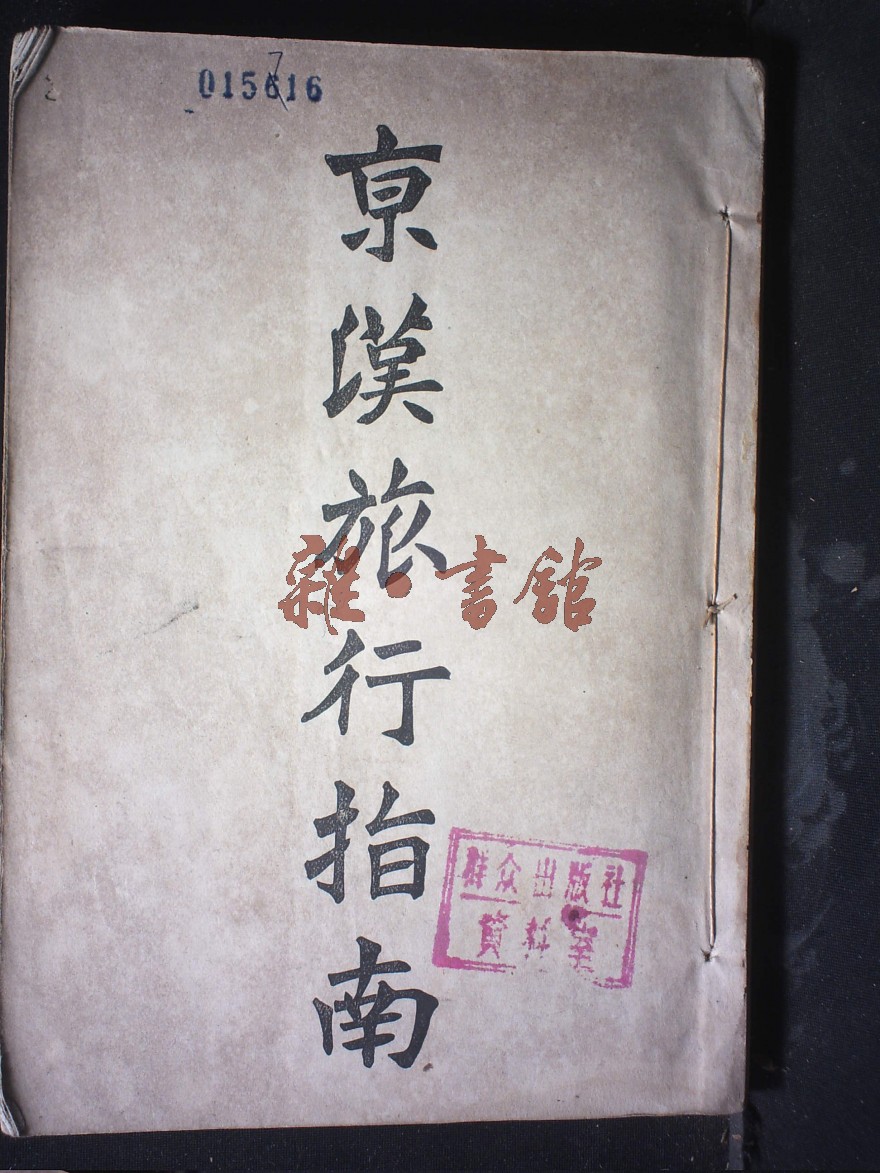 015616
7
京漢旅行指南
雜·書館
群众出版社
資料室